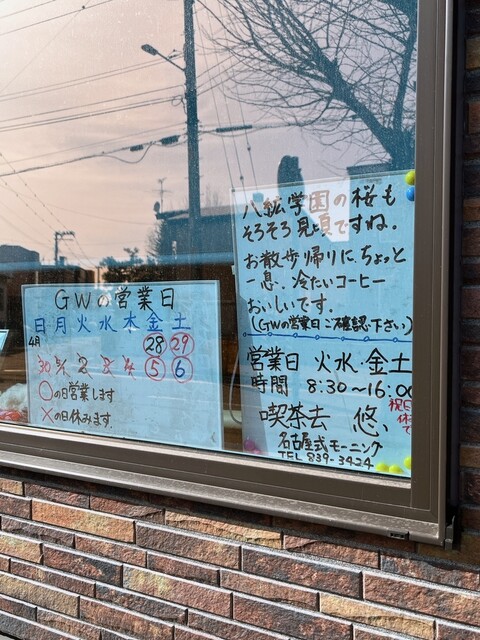 GWの営業日
日月火水木金土
4月 28 29
30 5/1 2 3 4 5 6
○の日営業します
×の日休みます.
八紘学園の桜も
そろそろ見頃ですね。
お散歩帰りに、ちょっと
一息、冷たいコーヒー
おいしいです.
(GWの営業日ご確認下さい)
営業日 火水・金土
時間 8:30〜16:00
喫茶去 悠、
名古屋式モーニング
TEL 839-3424